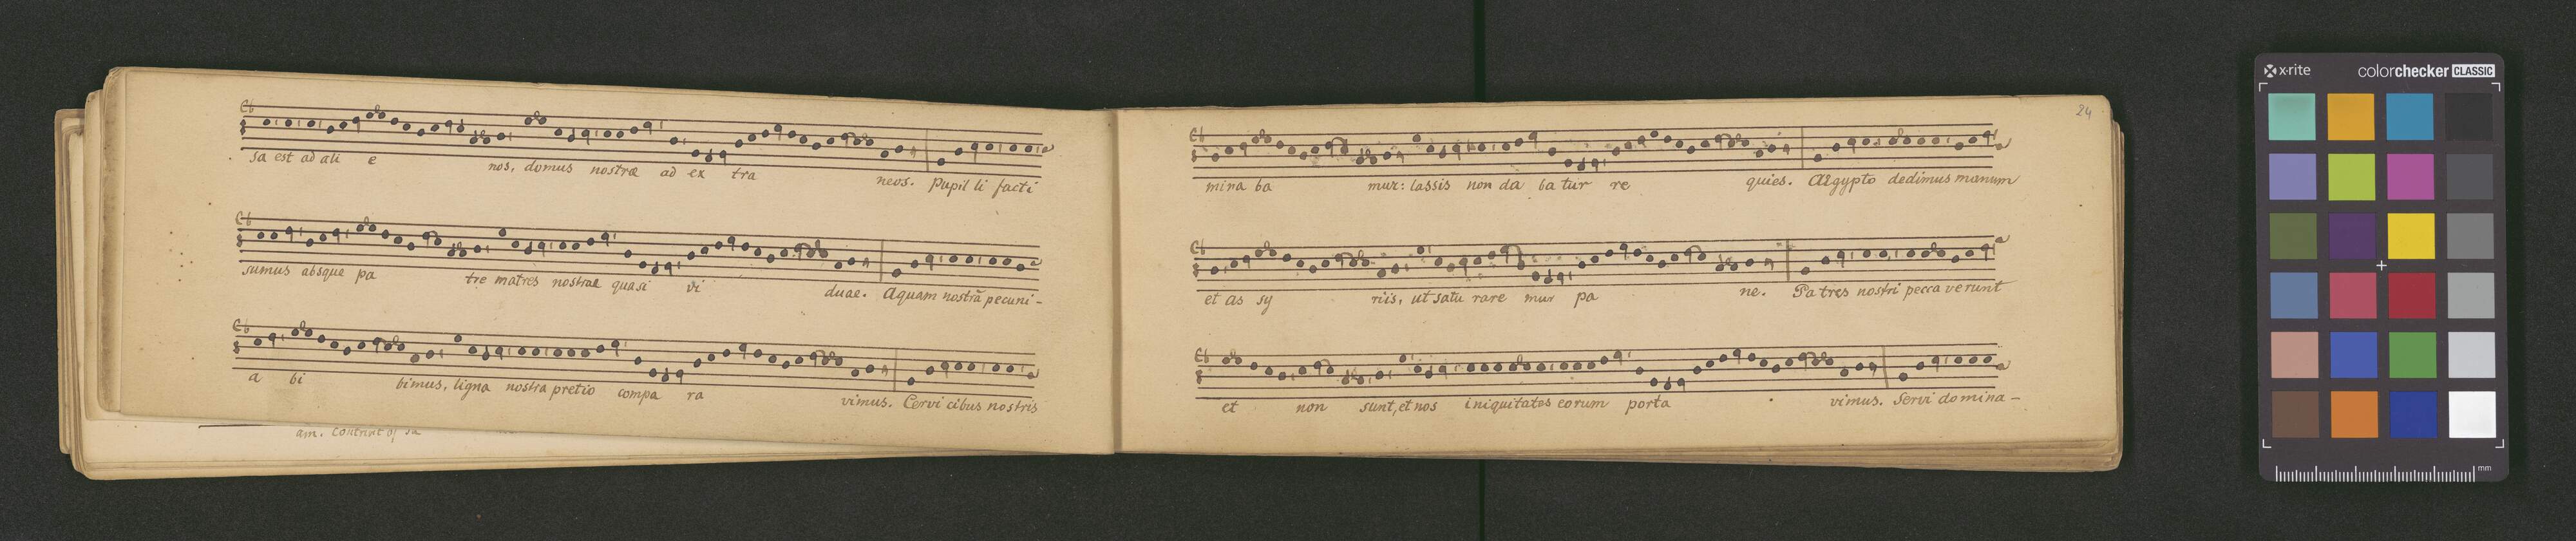 sa est ad ali e nos, domus nostræ ad ex tra neos. Pupil li facti
sumus absque pa tre matres nostrae quasi vi duae. Aquam nostrã pecuni-
a bi bimus, ligna nostra pretio compa ra vimus. Cervi cibus nostris
am. Contriut
24
mina ba mur: lassis non da ba tur re quies. Ægypto dedimus manum
et as sy riis, ut satu rare mur pa ne. Patres nostri pecca verunt
et non sunt, et nos iniquitates eorum porta vimus. Servi domina-
x·rite colorchecker CLASSIC
mm